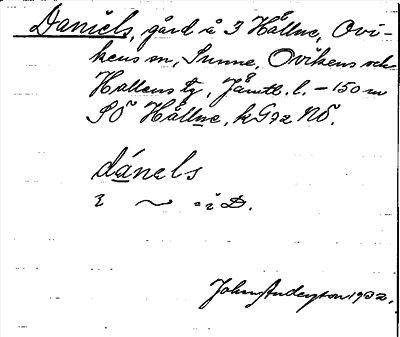 Daniels, gård å 3 Hållne, Ovi-
kens sn, Sunne, Ovikens och
Hallens tg, Jämtl. l. – 150 m
SÖ Hållne, kG72 NÖ.
dánels
i ~ = i D.
John Anderson 1932.